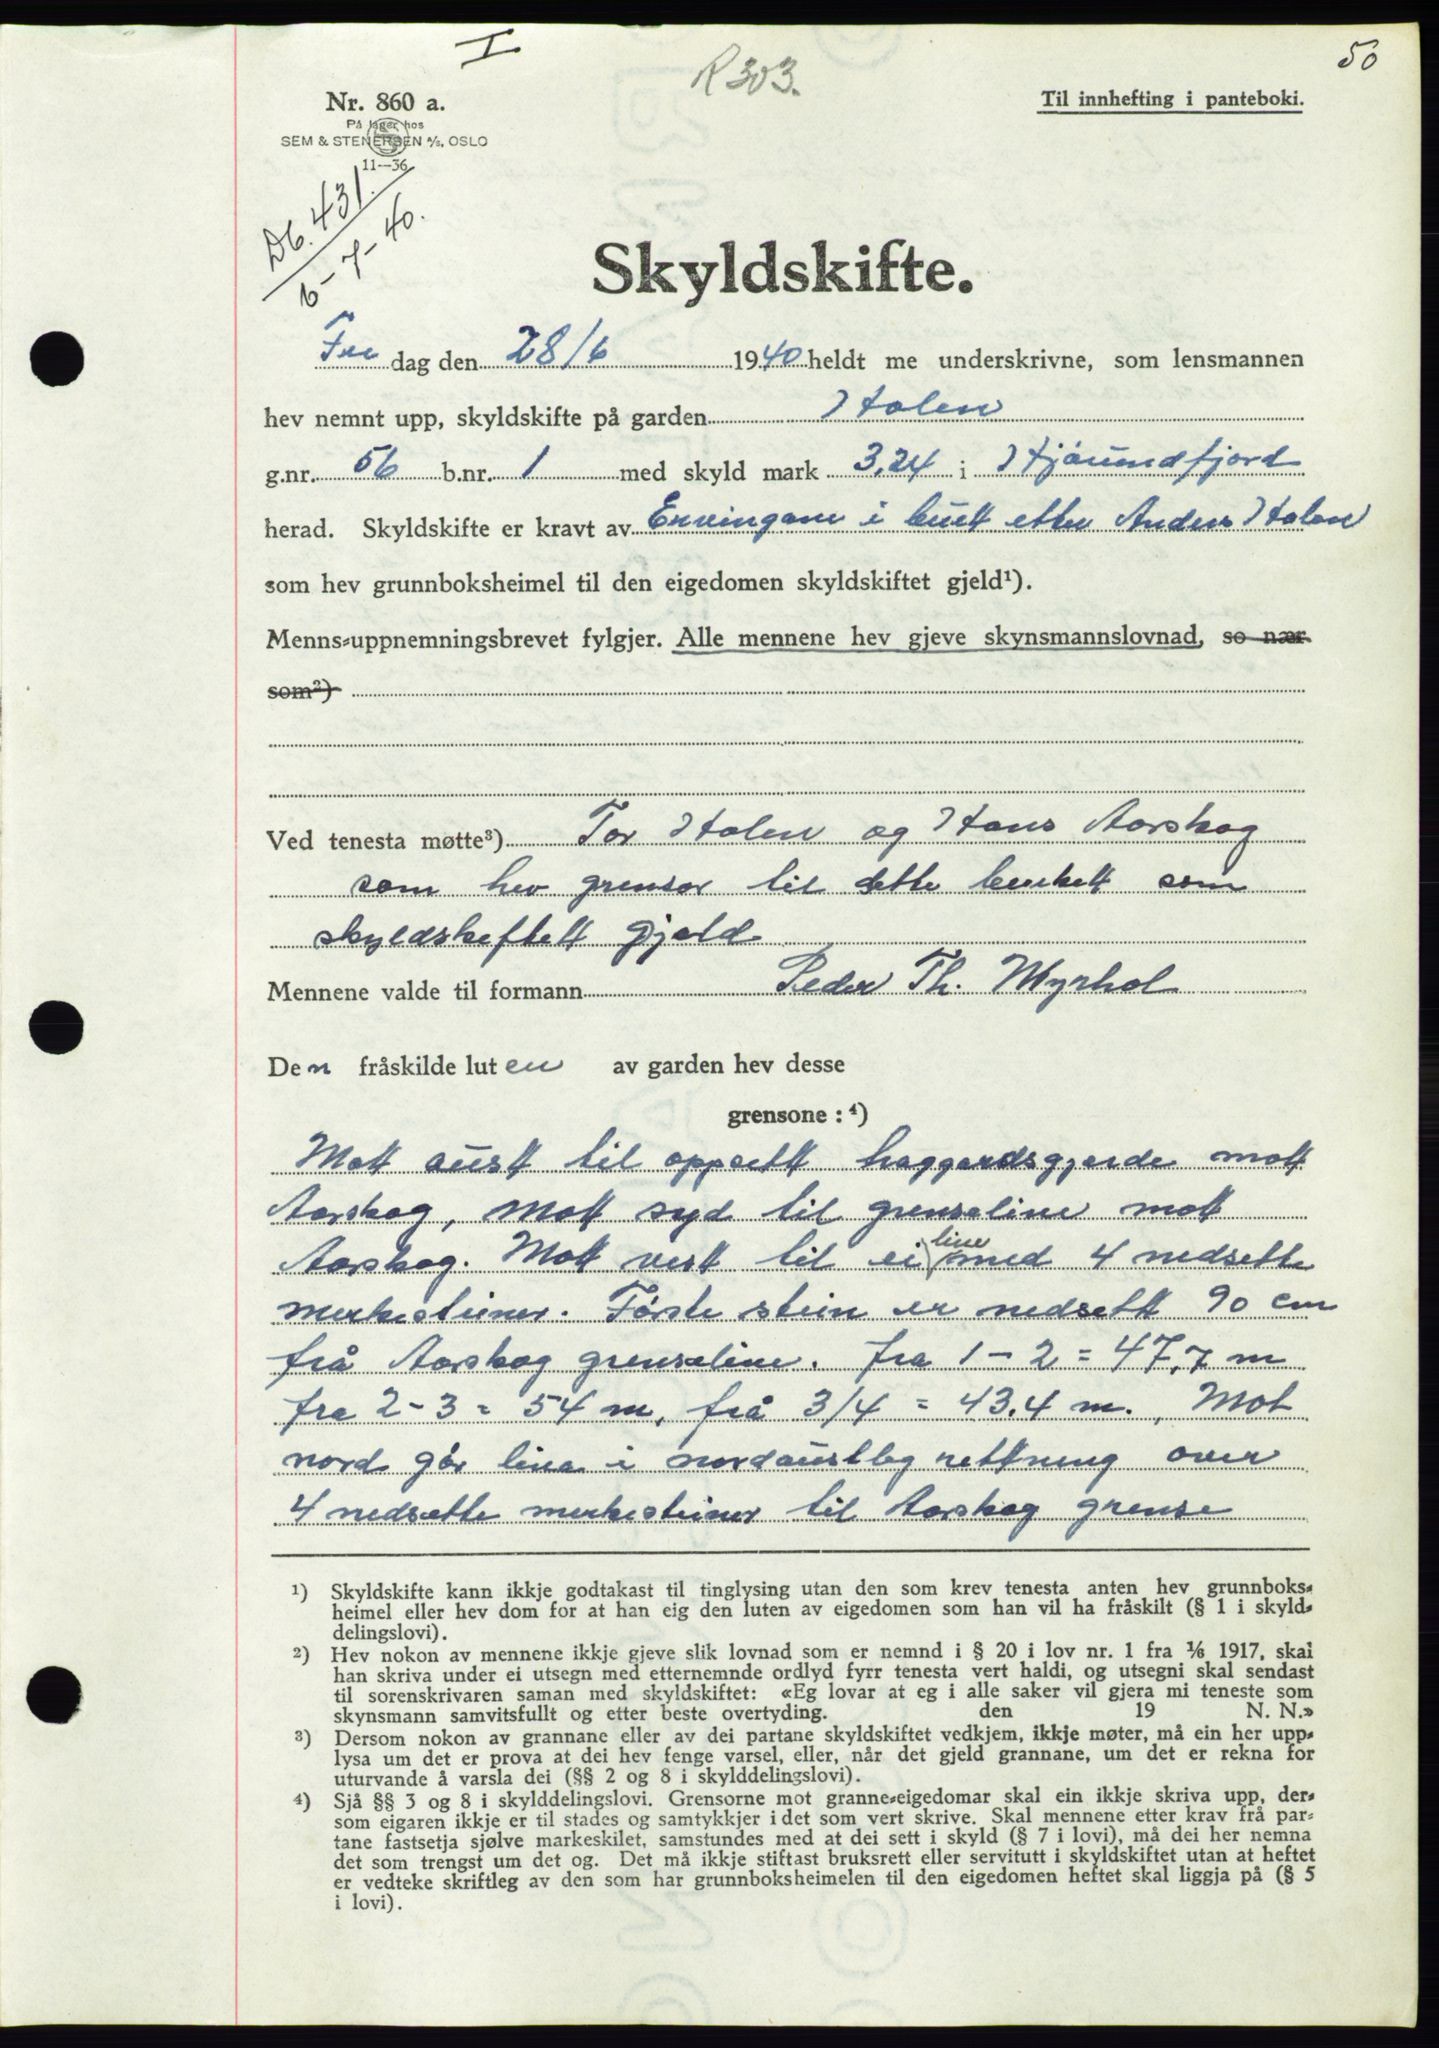 I
R 303.
50
Nr. 860 a.
På lager hos
SEM & STENERSEN A/S, OSLO
11—36
Til innhefting i panteboki.
Db. 431.
6-7-40.
Skyldskifte.
Fre dag den 28/6 1940 heldt me underskrivne, som lensmannen
hev nemnt upp, skyldskifte på garden Holen
g.nr. 56 b.nr. 1 med skyld mark 3,24 i Hjörundfjord
herad. Skyldskifte er kravt av Ervingane i buet etter Anders Holen
som hev grunnboksheimel til den eigedomen skyldskiftet gjeld¹).
Menns-uppnemningsbrevet fylgjer. Alle mennene hev gjeve skynsmannslovnad, so nær
som²)
Ved tenesta møtte³) Tor Holen og Hans Aarskog
som hev grensor til dette bruket som
skyldskeftett gjeld
Mennene valde til formann Peder Th. Myrhol
Den fråskilde luten av garden hev desse
grensone : ⁴)
Mott aust til oppsett haggardsgjerde mott
Aarskog, Mott syd til grenseline mott
Aarskog. Mott vest til ei line med 4 nedsette
merkesteiner. Förste stein er nedsett 90 cm
frå Aarskog grenseline. fra 1-2 = 47,7 m
fra 2-3 = 54 m, frå 3/4 = 43.4 m. , Mot
nord går lina i nordaustleg rettning over
4 nedsette merkesteiner til Aarskog grense
¹) Skyldskifte kann ikkje godtakast til tinglysing utan den som krev tenesta anten hev grunnboks-
heimel eller hev dom for at han eig den luten av eigedomen som han vil ha fråskilt (§ 1 i skyld-
delingslovi).
²) Hev nokon av mennene ikkje gjeve slik lovnad som er nemnd i § 20 i lov nr. 1 fra 1/6 1917, skal
han skriva under ei utsegn med etternemnde ordlyd fyrr tenesta vert haldi, og utsegni skal sendast
til sorenskrivaren saman med skyldskiftet: «Eg lovar at eg i alle saker vil gjera mi teneste som
skynsmann samvitsfullt og etter beste overtyding. den 19 N. N.»
³) Dersom nokon av grannane eller av dei partane skyldskiftet vedkjem, ikkje møter, må ein her upp-
lysa um det er prova at dei hev fenge varsel, eller, når det gjeld grannane, um det er rekna for
uturvande å varsla dei (§§ 2 og 8 i skylddelingslovi).
⁴) Sjå §§ 3 og 8 i skylddelingslovi. Grensorne mot granne-eigedomar skal ein ikkje skriva upp, der-
som eigaren ikkje er til stades og samtykkjer i det som vert skrive. Skal mennene etter krav frå par-
tane fastsetja sjølve markeskilet, samstundes med at dei sett i skyld (§ 7 i lovi), må dei her nemna
det som trengst um det og. Det må ikkje stiftast bruksrett eller servitutt i skyldskiftet utan at heftet
er vedteke skriftleg av den som har grunnboksheimelen til den eigedomen heftet skal liggja på (§ 5
i lovi).